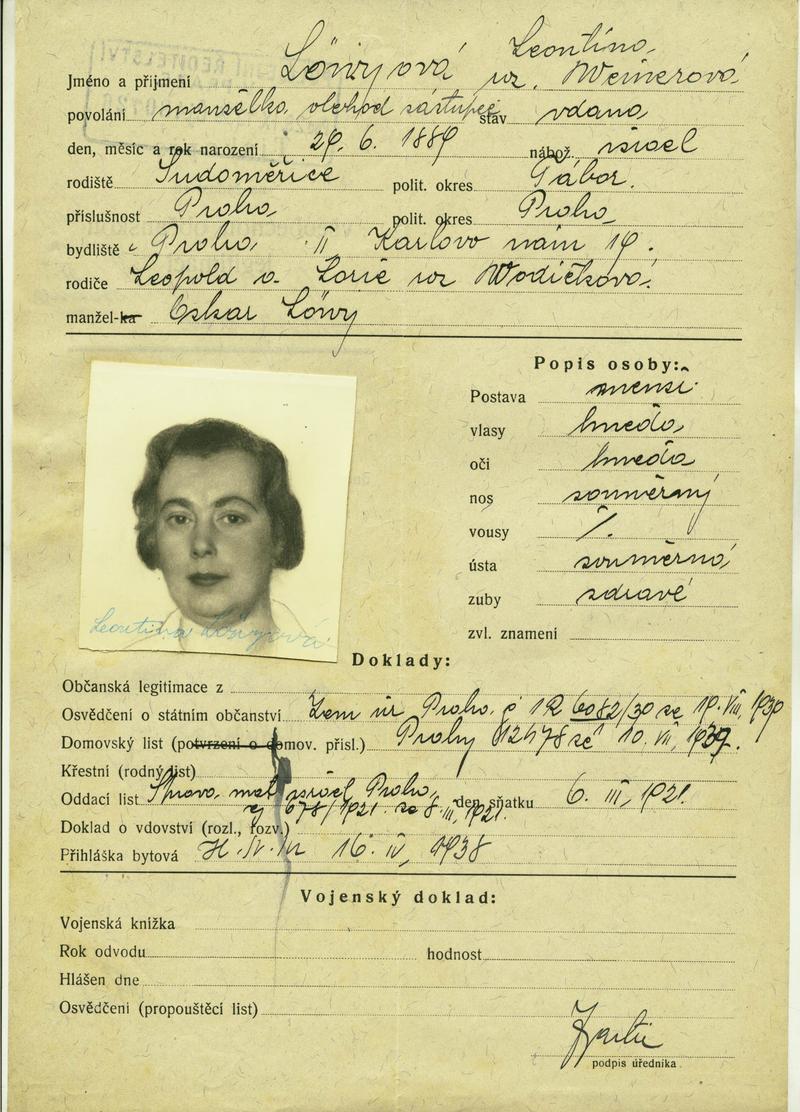 Jméno a přijmení Löwyová Leontina
roz. Weinerová
povolání manželka obchod. zástupce stav vdaná
den, měsíc a rok narození 29. 6. 1889 nábož. israel
rodiště Sudoměřice polit. okres Tábor.
příslušnost Praha polit. okres Praha
bydliště Praha II Karlovo nám 19.
rodiče Leopold a Lorie roz Wodičková.
manžel-ka Oskar Löwy
Popis osoby:
Postava menší
vlasy hnědé
oči hnědé
nos souměrný
vousy /.
ústa souměrná
zuby zdravé
zvl. znamení
Leontina Löwyová
Doklady:
Občanská legitimace z
Osvědčení o státním občanství Zem úř Praha č 12 6082/30 ze 19. VIII, 1930
Domovský list (potvrzení o domov. přísl.) Prahy 12678 ze 10. VII, 1939.
Křestní (rodný list)
Oddací list mat israel Praha, den sňatku 6. III, 1921.
čj 678/1921 ze 8. III, 1921.
Doklad o vdovství (rozl., rozv.)
Přihláška bytová 16. IV, 1938
Vojenský doklad:
Vojenská knížka
Rok odvodu hodnost
Hlášen dne
Osvědčení (propouštěcí list)
podpis úředníka